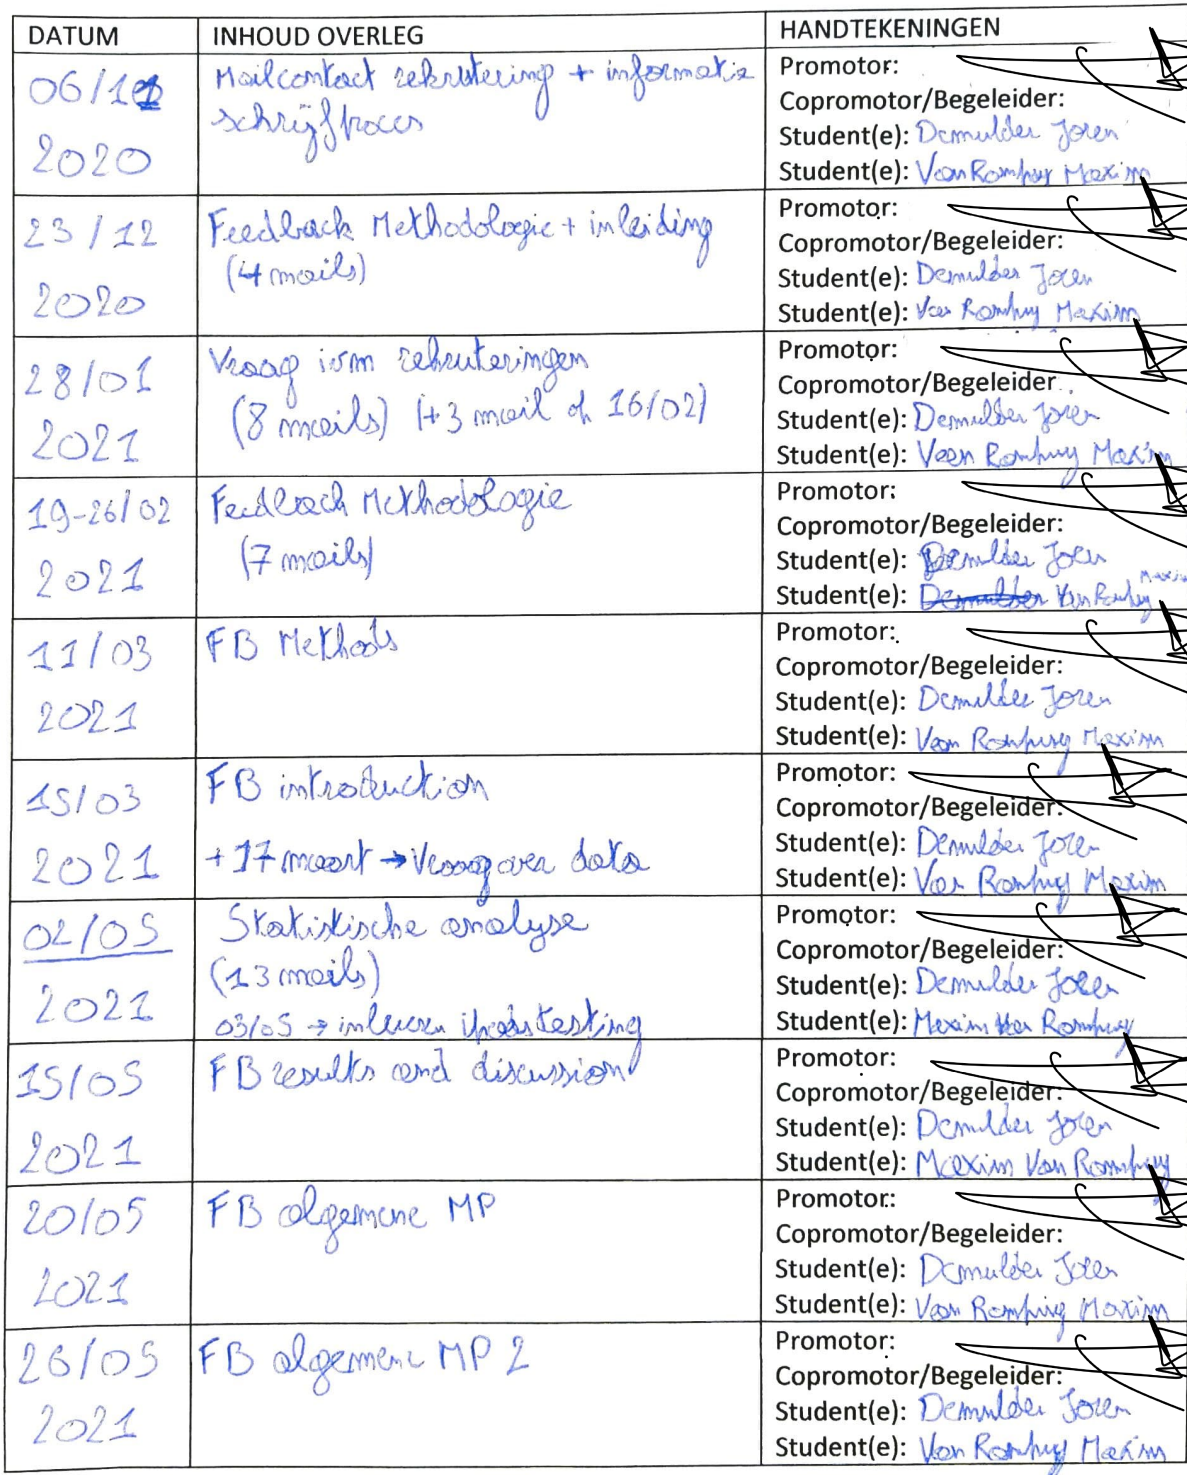 DATUM
INHOUD OVERLEG
HANDTEKENINGEN
06/11
2020
Mailcontact rekrutering + informatie
schrijfproces
Promotor:
Copromotor/Begeleider:
Student(e): Demulder Joren
Student(e): Van Rompuy Maxim
23/12
2020
Feedback Methodologie + inleiding
(4 mails)
Promotor:
Copromotor/Begeleider:
Student(e): Demulder Joren
Student(e): Van Rompuy Maxim
28/01
2021
Vraag ivm rekruteringen
(8 mails) (+3 mail op 16/02)
Promotor:
Copromotor/Begeleider:
Student(e): Demulder Joren
Student(e): Van Rompuy Maxim
19-26/02
2021
Feedback Methodologie
(7 mails)
Promotor:
Copromotor/Begeleider:
Student(e): Demulder Joren
Student(e): Demulder Van Rompuy Maxim
11/03
2021
FB Methods
Promotor:
Copromotor/Begeleider:
Student(e): Demulder Joren
Student(e): Van Rompuy Maxim
15/03
2021
FB introduction
+ 17 maart → Vraag over data
Promotor:
Copromotor/Begeleider:
Student(e): Demulder Joren
Student(e): Van Rompuy Maxim
02/05
2021
Statistische analyse
(13 mails)
03/05 → testing
Promotor:
Copromotor/Begeleider:
Student(e): Demulder Joren
Student(e): Maxim Van Rompuy
15/05
2021
FB results and discussion
Promotor:
Copromotor/Begeleider:
Student(e): Demulder Joren
Student(e): Maxim Van Rompuy
20/05
2021
FB algemene MP
Promotor:
Copromotor/Begeleider:
Student(e): Demulder Joren
Student(e): Van Rompuy Maxim
26/05
2021
FB algemene MP 2
Promotor:
Copromotor/Begeleider:
Student(e): Demulder Joren
Student(e): Van Rompuy Maxim